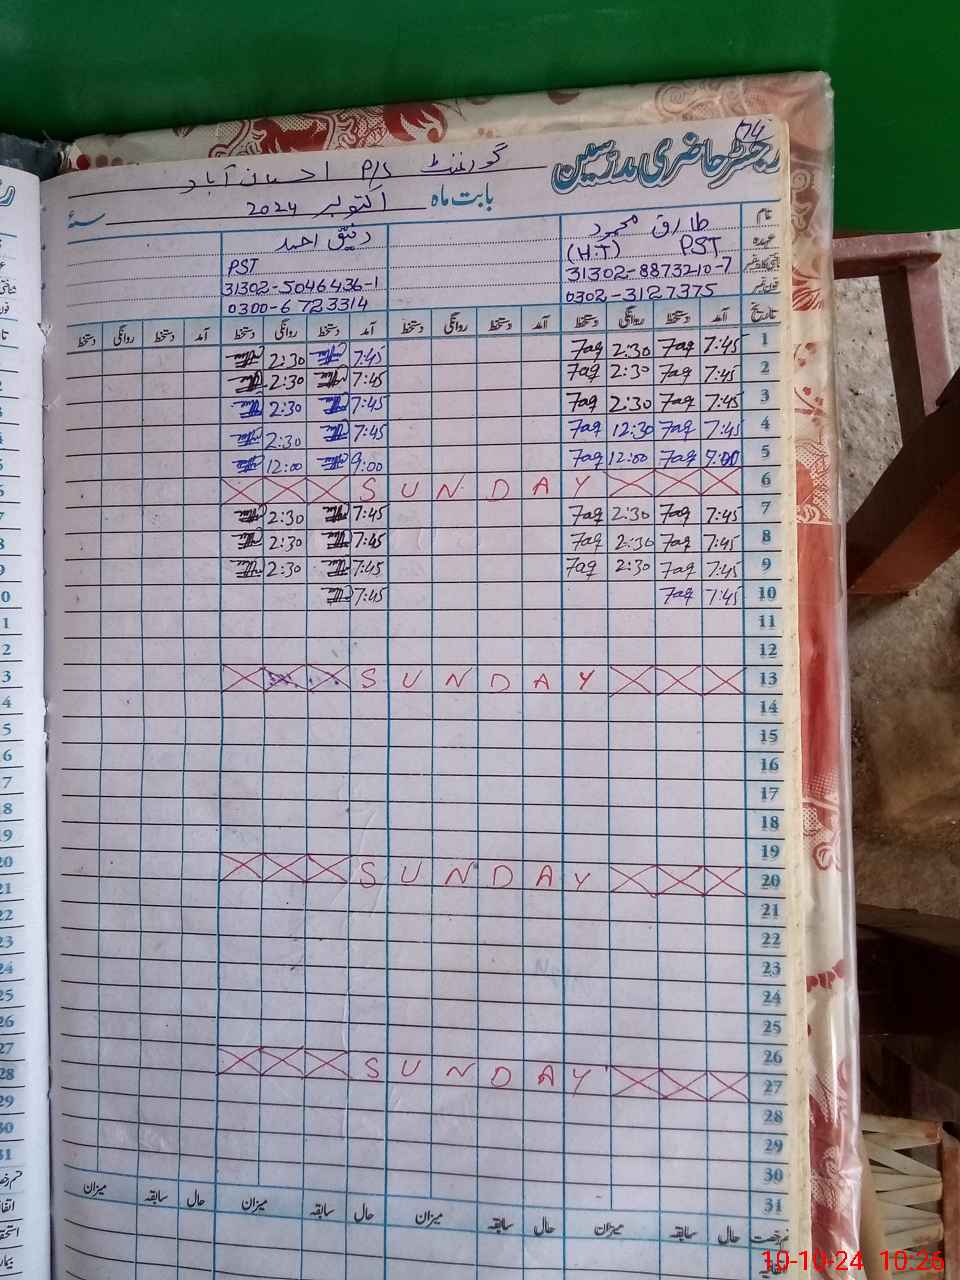 174
رجسٹر حاضری مدرسین
گورنمنٹ P/S احسان آباد
بابت ماہ اکتوبر 2024 سنۂ
نام طارق محمود رفیق احمد
عہدہ PST (H.T) PST
شناختی کارڈ نمبر 31302-8873210-7 31302-5046436-1
فون نمبر 0302-3127375 0300-6723314
تاریخ آمد دستخط روانگی دستخط آمد دستخط روانگی دستخط آمد دستخط روانگی دستخط آمد دستخط روانگی دستخط
1 7:45 7aq 2:30 7aq 7:45 2:30
2 7:45 7aq 2:30 7aq 7:45 2:30
3 7:45 7aq 2:30 7aq 7:45 2:30
4 7:45 7aq 12:30 7aq 7:45 2:30
5 9:00 7aq 12:00 7aq 9:00 12:00
6 S U N D A Y
7 7:45 7aq 2:30 7aq 7:45 2:30
8 7:45 7aq 2:30 7aq 7:45 2:30
9 7:45 7aq 2:30 7aq 7:45 2:30
10 7:45 7aq 7:45
11
12
13 S U N D A Y
14
15
16
17
18
19
20 S U N D A Y
21
22
23
24
25
26
27 S U N D A Y
28
29
30
31
حال سابقہ میزان حال سابقہ میزان حال سابقہ میزان حال سابقہ میزان
10-10-24 10:26